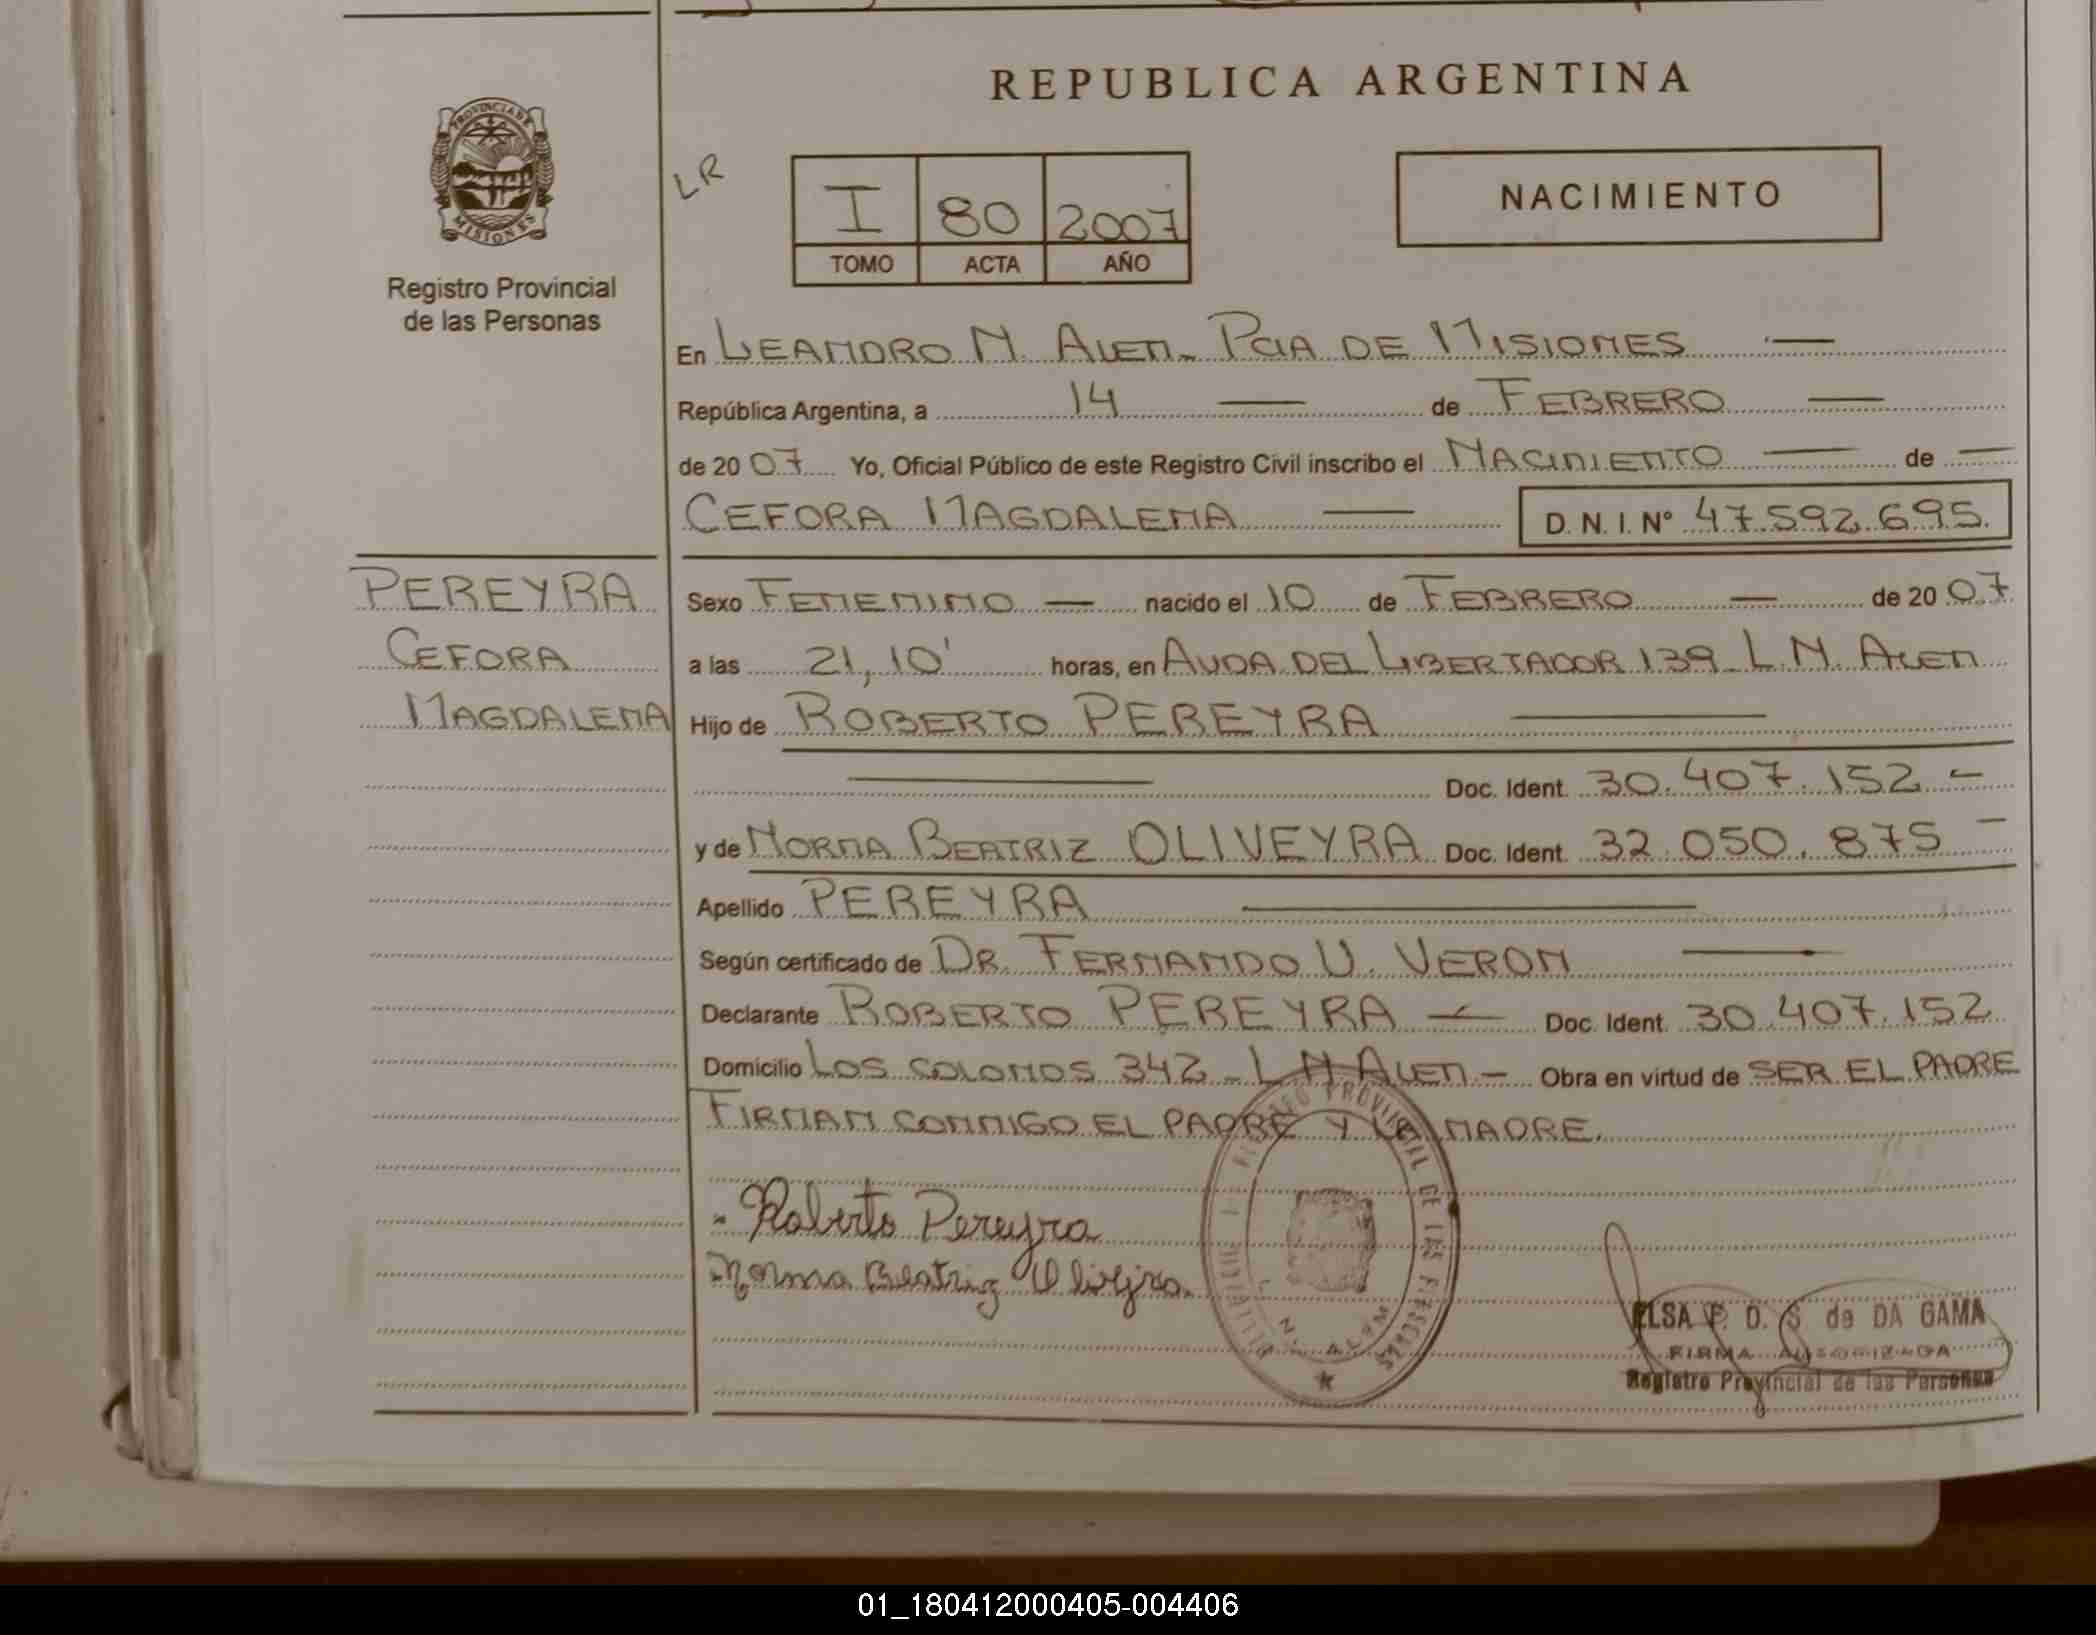 REPUBLICA ARGENTINA
PROVINCIA DE
MISIONES
Registro Provincial
de las Personas
LR
I 80 2007
TOMO ACTA AÑO
NACIMIENTO
En LEANDRO N. ALEM - PCIA DE MISIONES —
República Argentina, a 14 — de FEBRERO —
de 2007 Yo, Oficial Público de este Registro Civil inscribo el NACIMIENTO — de —
CEFORA MAGDALENA — D. N. I. Nº 47.592.695.
PEREYRA
CEFORA
MAGDALENA
Sexo FEMENINO — nacido el 10 de FEBRERO — de 2007
a las 21,10' horas, en AVDA DEL LIBERTADOR 139 L. N. ALEM
Hijo de ROBERTO PEREYRA —
— Doc. Ident. 30.407.152 -
y de NORMA BEATRIZ OLIVEYRA Doc. Ident. 32.050.875 -
Apellido PEREYRA —
Según certificado de DR. FERNANDO U. VERON —
Declarante ROBERTO PEREYRA — Doc. Ident. 30.407.152
Domicilio LOS COLONOS 342 - L N ALEM - Obra en virtud de SER EL PADRE
FIRMAN CONMIGO EL PADRE Y LA MADRE.
Roberto Pereyra
Norma Beatriz Oliveyra.
REGISTRO PROVINCIAL DE LAS PERSONAS
N. ALEM
ELSA F. D. S. de DA GAMA
FIRMA AUTORIZADA
Registro Provincial de las Personas
01_180412000405-004406